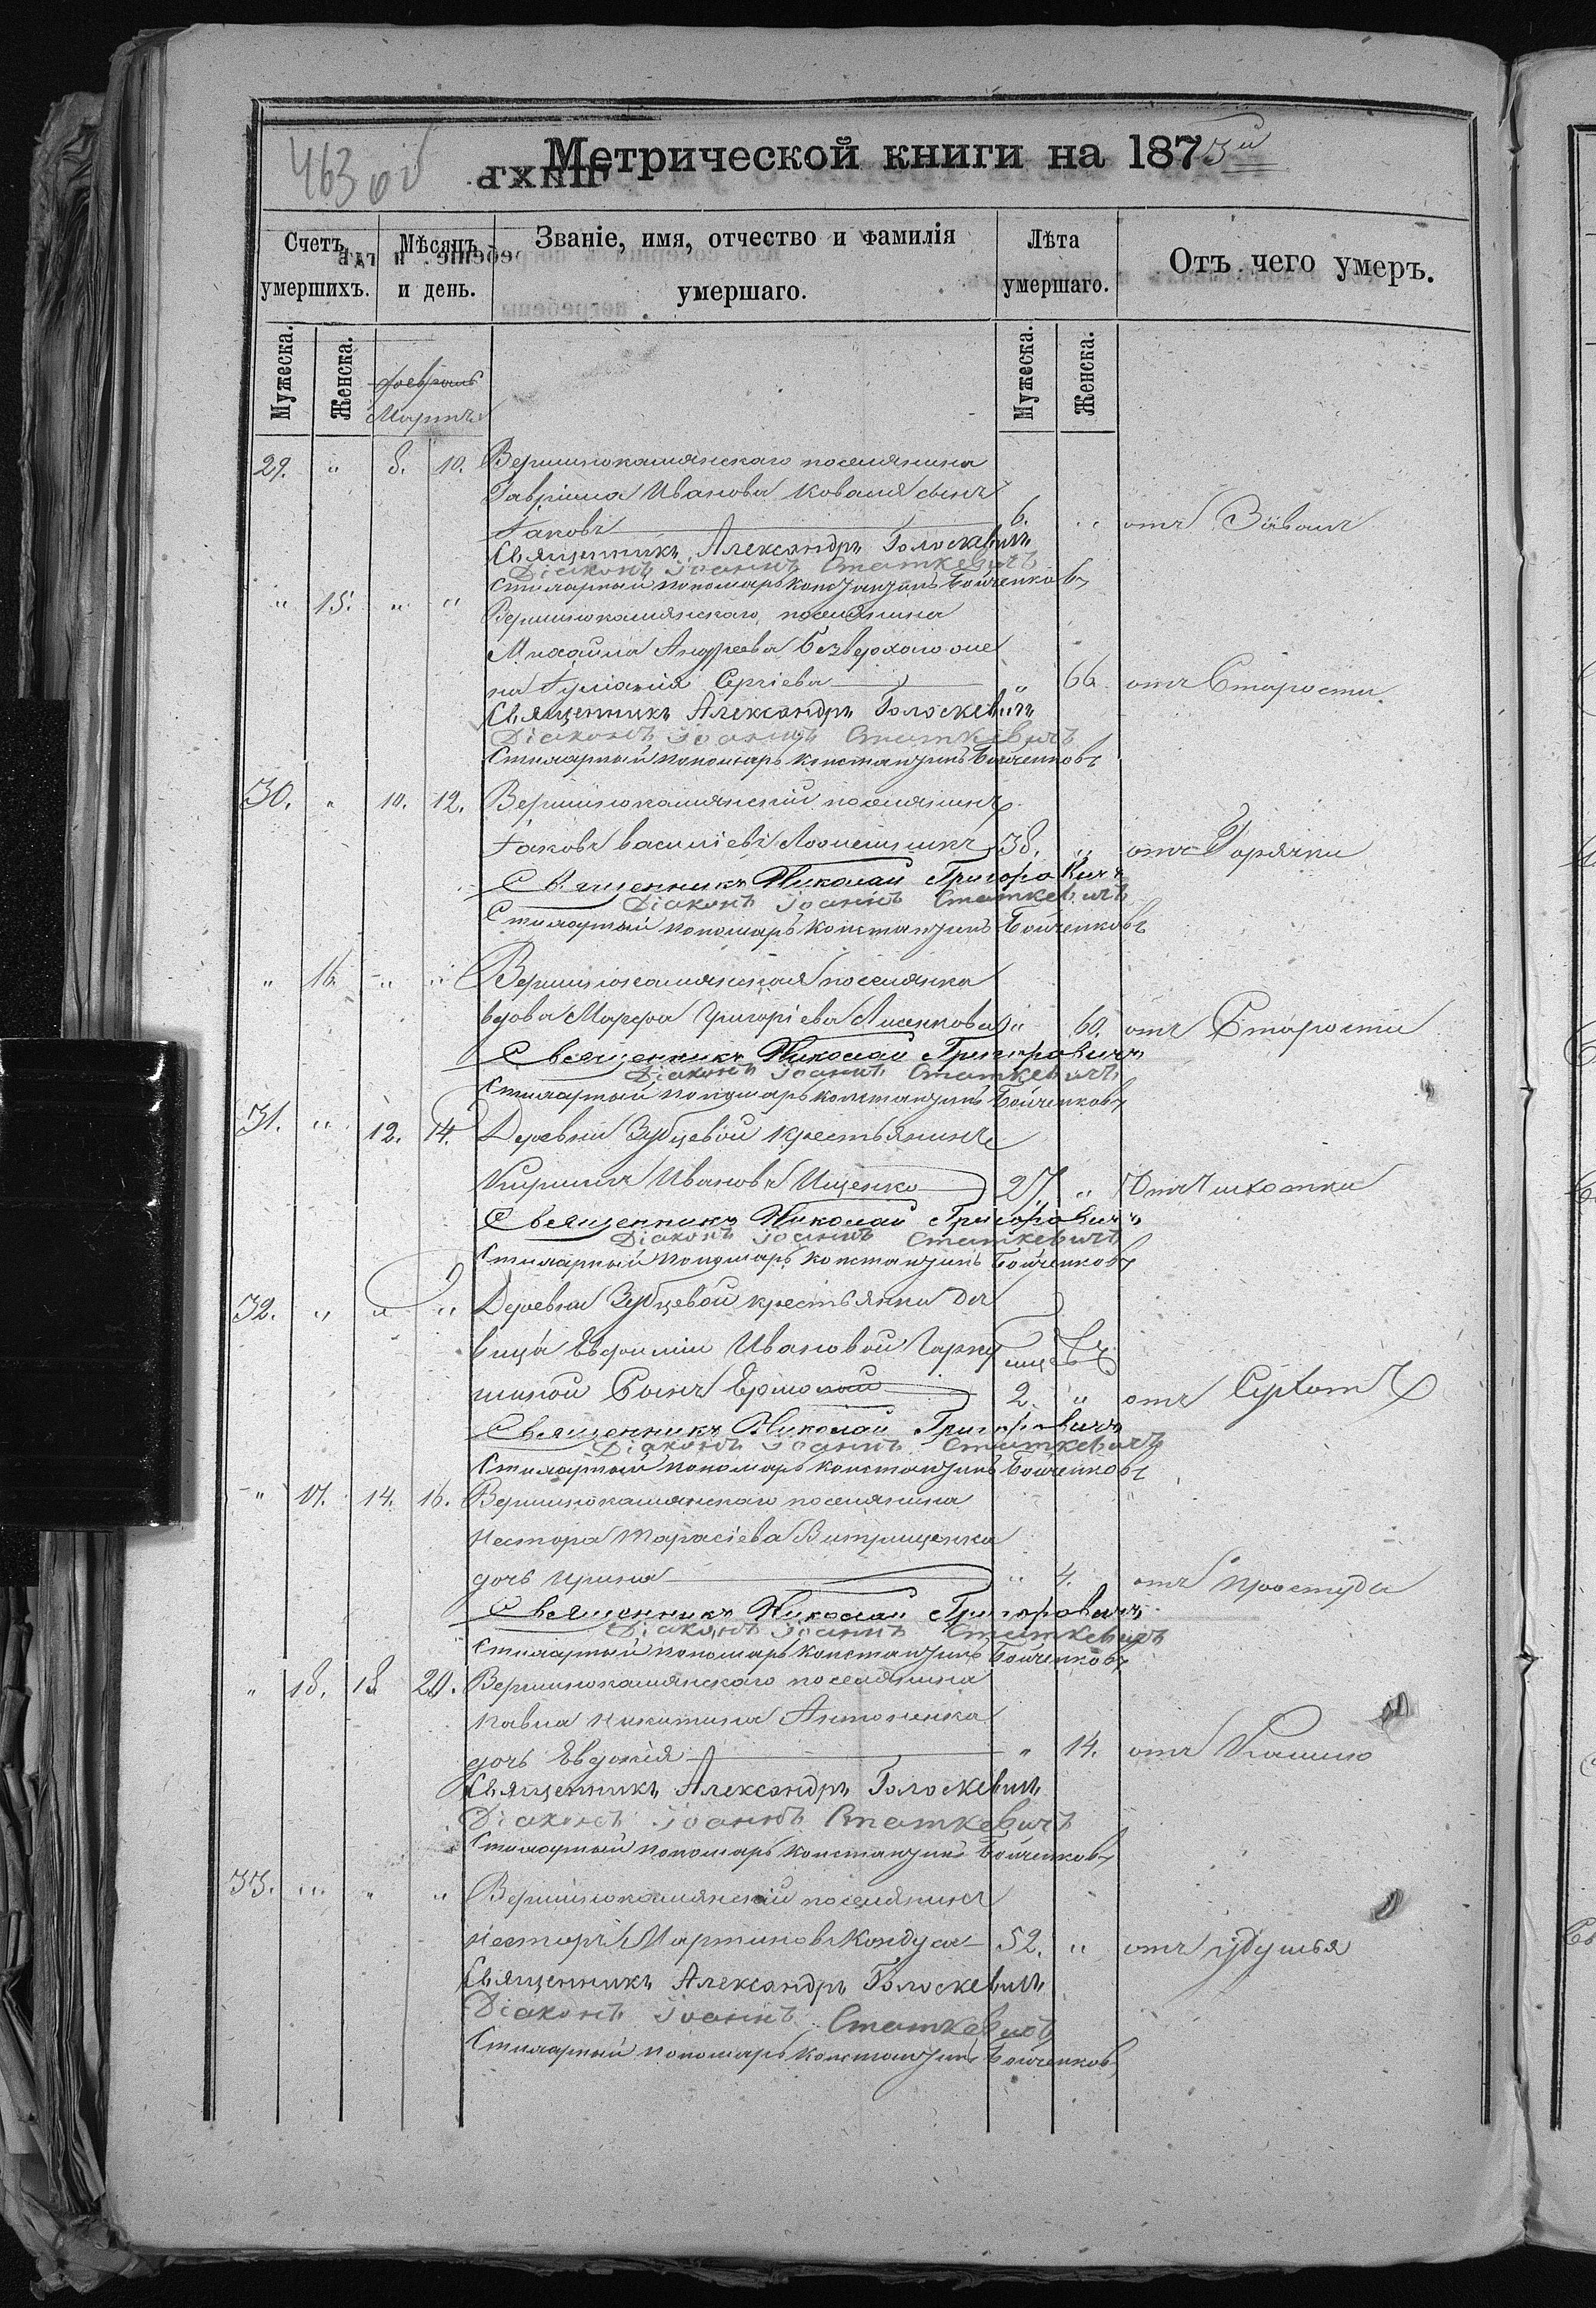 463 об
Метрической книги на 1875й
Счетъ умершихъ.
Мѣсяцъ и день.
Званіе, имя, отчество и фамилія умершаго.
Лѣта умершаго.
Отъ чего умеръ.
Мужеска. Женска. Мужеска. Женска.
февраль
Мартъ
29. " 8. 10. Вершинокамянскаго поселянина
Гавріила Иванова Коваля сынъ
Іаковъ 6. " отъ
Священникъ Александръ Голоскевичъ
Діаконъ Іоаннъ Статкевичъ
Стихарный пономарь Константинъ Бойченковъ
" 15. " " Вершинокамянскаго поселянина
Михаила Андреева Безверхаго же
на Іуліанія Сергіева " 66 отъ Старости
Священникъ Александръ Голоскевичъ
Діаконъ Іоаннъ Статкевичъ
Стихарный пономарь Константинъ Бойченковъ
30. " 10. 12. Вершинокамянскій поселянинъ
Іаковъ Василіевъ 38. " отъ Горячки
Священникъ Николай Григоровичъ
Діаконъ Іоаннъ Статкевичъ
Стихарный пономарь Константинъ Бойченковъ
" 16. " " Вершинокамянская поселянка
вдова Марфа Григоріева Лисенкова " 60. отъ Старости
Священникъ Николай Григоровичъ
Діаконъ Іоаннъ Статкевичъ
Стихарный пономарь Константинъ Бойченковъ
31. " 12. 14. Деревни Зубцевой крестьянинъ
Кириллъ Ивановъ Ищенко 27. " Отъ чихотки
Священникъ Николай Григоровичъ
Діаконъ Іоаннъ Статкевичъ
Стихарный пономарь Константинъ Бойченковъ
32. " " " Деревни Зубцевой крестьянки дѣ
вицы Евфиміи Ивановой Гарку мѣсяцъ
шиной Сынъ Ермолай 2. " отъ Сухотъ
Священникъ Николай Григоровичъ
Діаконъ Іоаннъ Статкевичъ
Стихарный пономарь Константинъ Бойченковъ
" 17. 14. 16. Вершинокамянскаго поселянина
Нестора Тарасіева Витрищенка
дочь Ирина " 4. отъ простуды
Священникъ Николай Григоровичъ
Діаконъ Іоаннъ Статкевичъ
Стихарный пономарь Константинъ Бойченковъ
" 18. 18 20. Вершинокамянскаго поселянина
Павла Никитина Антоненка
дочь Евдокія " 14. отъ Кашлю
Священникъ Александръ Голоскевичъ
Діаконъ Іоаннъ Статкевичъ
Стихарный пономарь Константинъ Бойченковъ
33. " " " Вершинокамянскій поселянинъ
Несторъ Мартиновъ Кондуса 52. " отъ удушья
Священникъ Александръ Голоскевичъ
Діаконъ Іоаннъ Статкевичъ
Стихарный пономарь Константинъ Бойченковъ